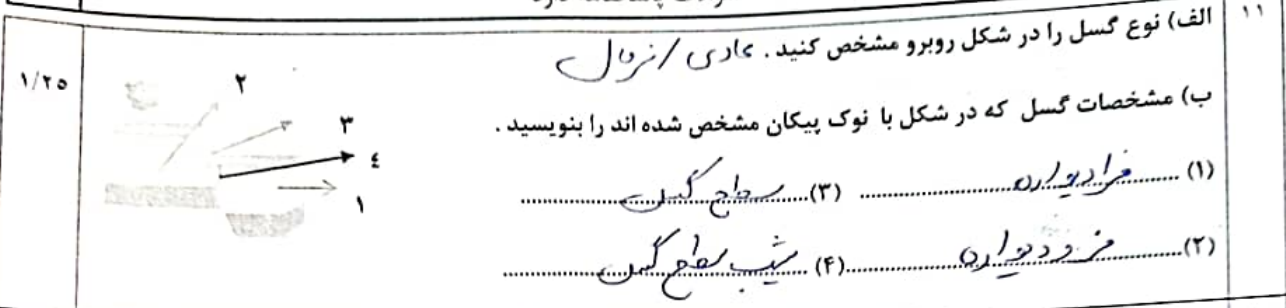 ۱۱
الف) نوع گسل را در شکل روبرو مشخص کنید . عادی / نرمال
۱/۲۵
ب) مشخصات گسل که در شکل با نوک پیکان مشخص شده اند را بنویسید .
۲
۳
٤
۱
(۱) ........ فرادیواره ........ (۳) ........ سطح گسل ........
(۲) ........ فرودیواره ........ (۴) ........ شیب سطح گسل ........